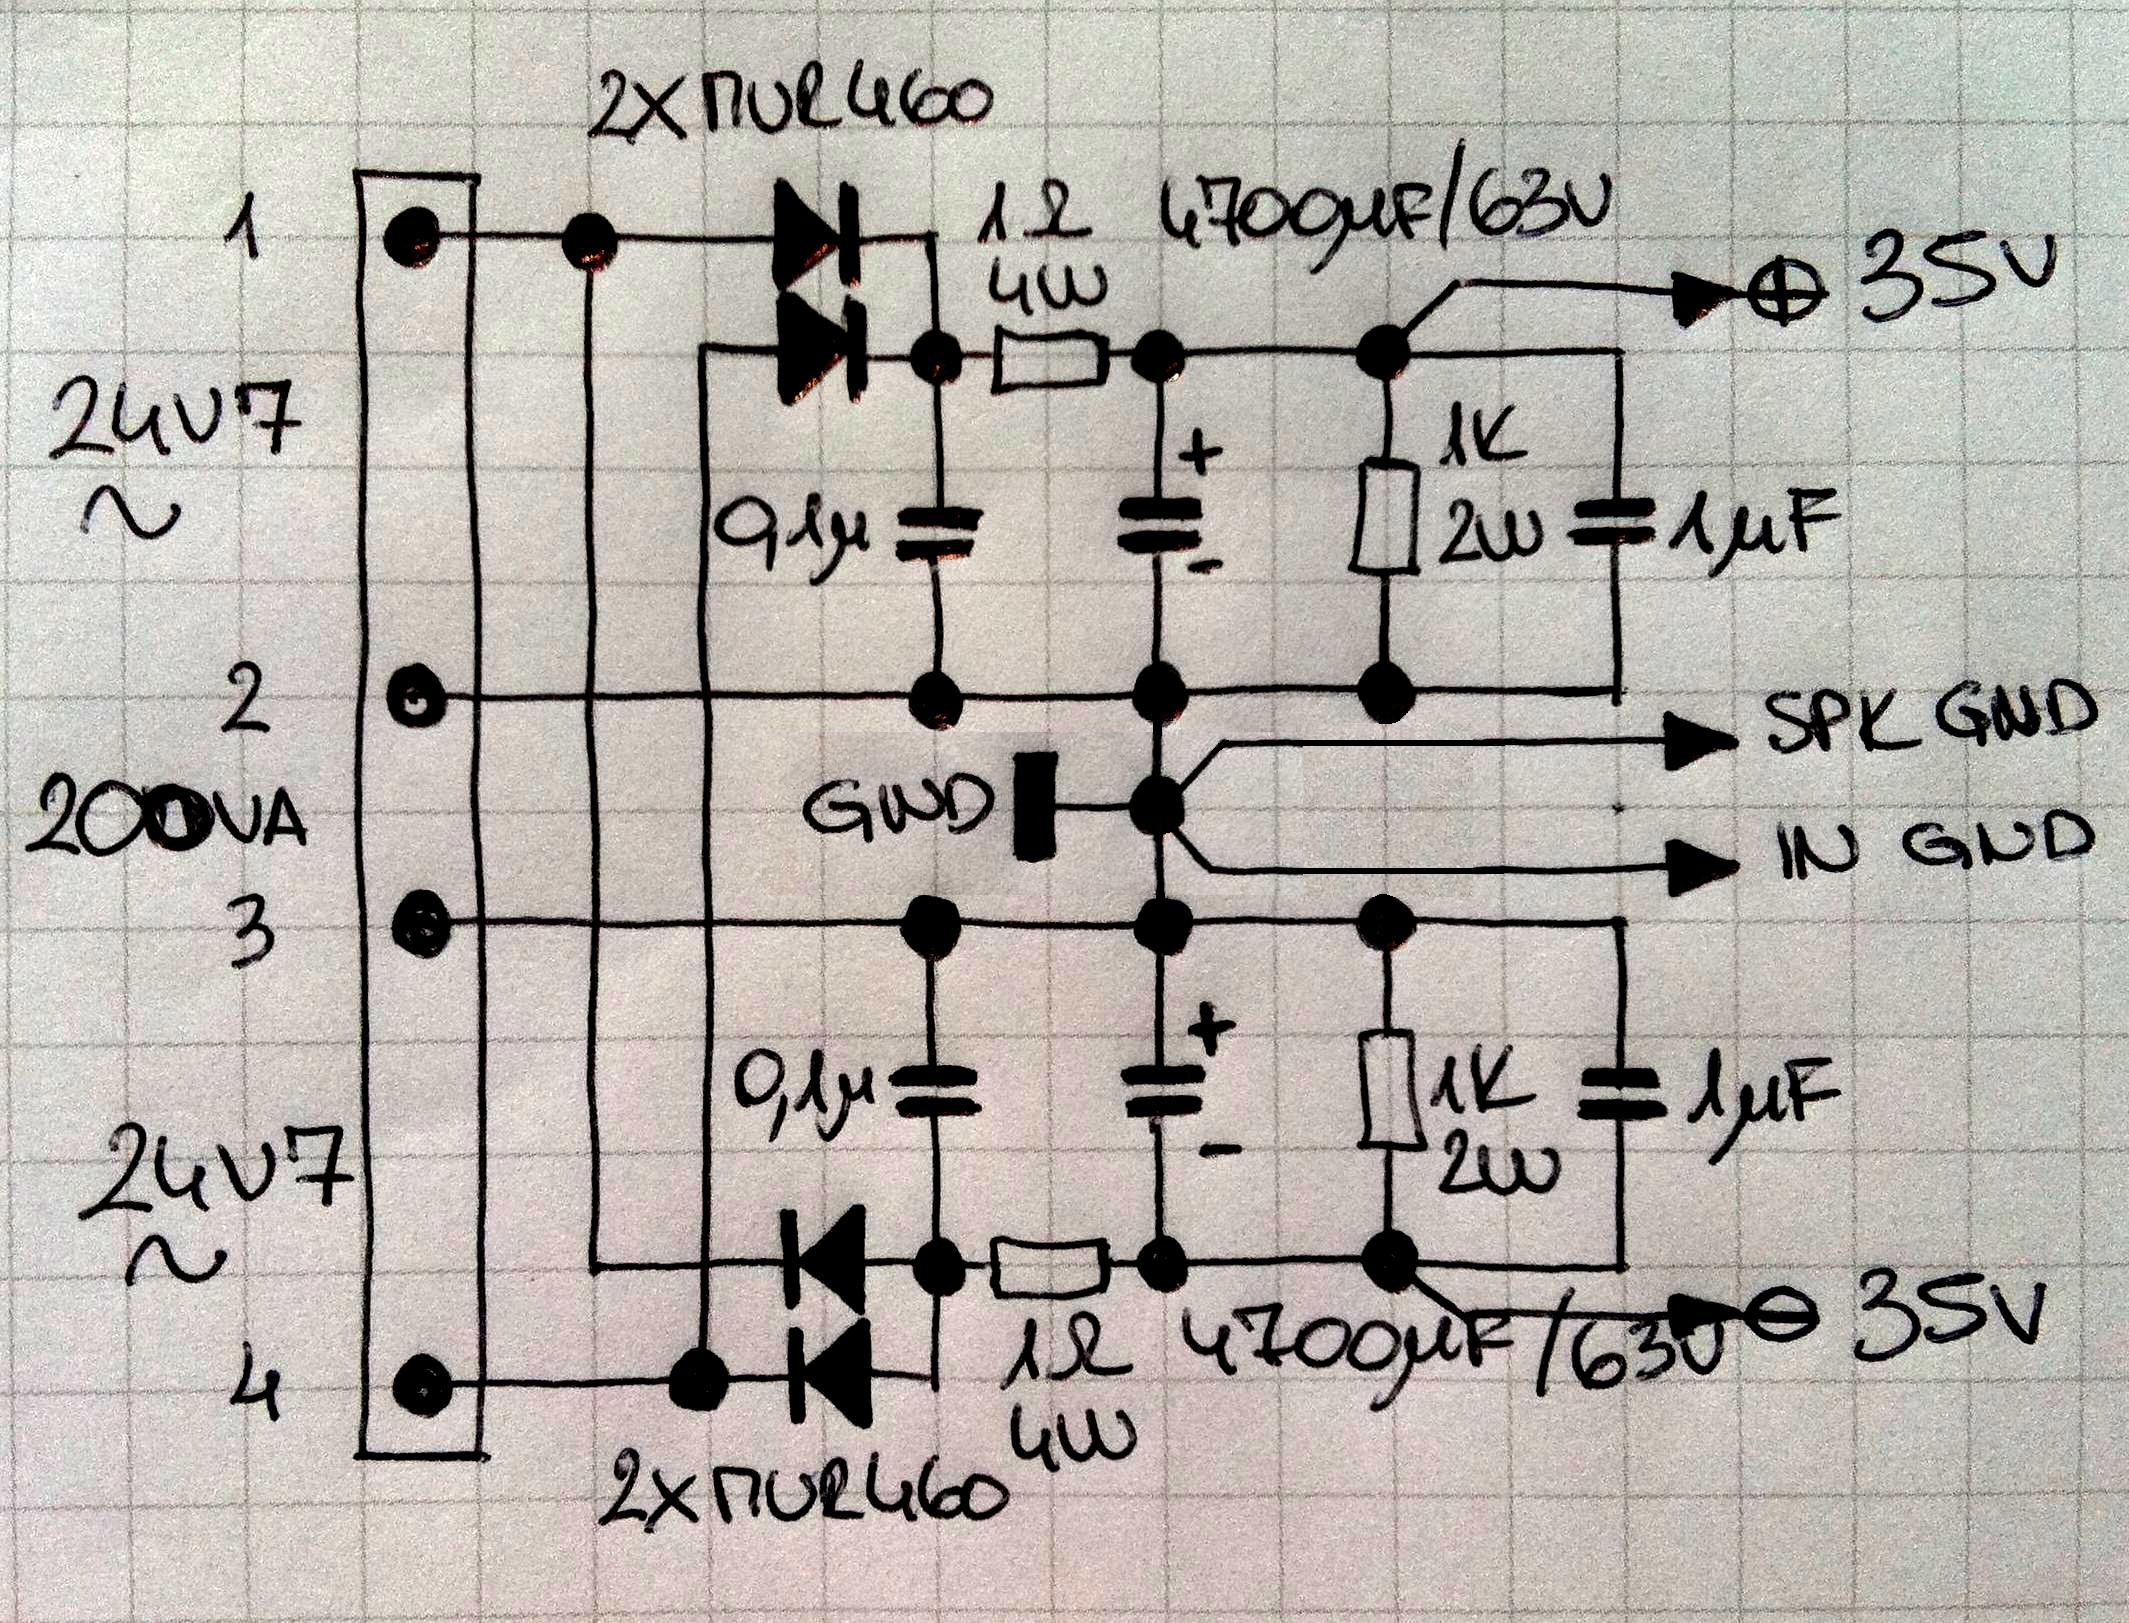 2XMUR460
1
1Ω
4W
4700µF/63V
⊕ 35V
24V7
~
0,1µ
+
-
1K
2W
1µF
2
SPK GND
200VA
GND
IN GND
3
0,1µ
+
-
1K
2W
1µF
24V7
~
1Ω
4W
4700µF/63V
⊖ 35V
4
2XMUR460